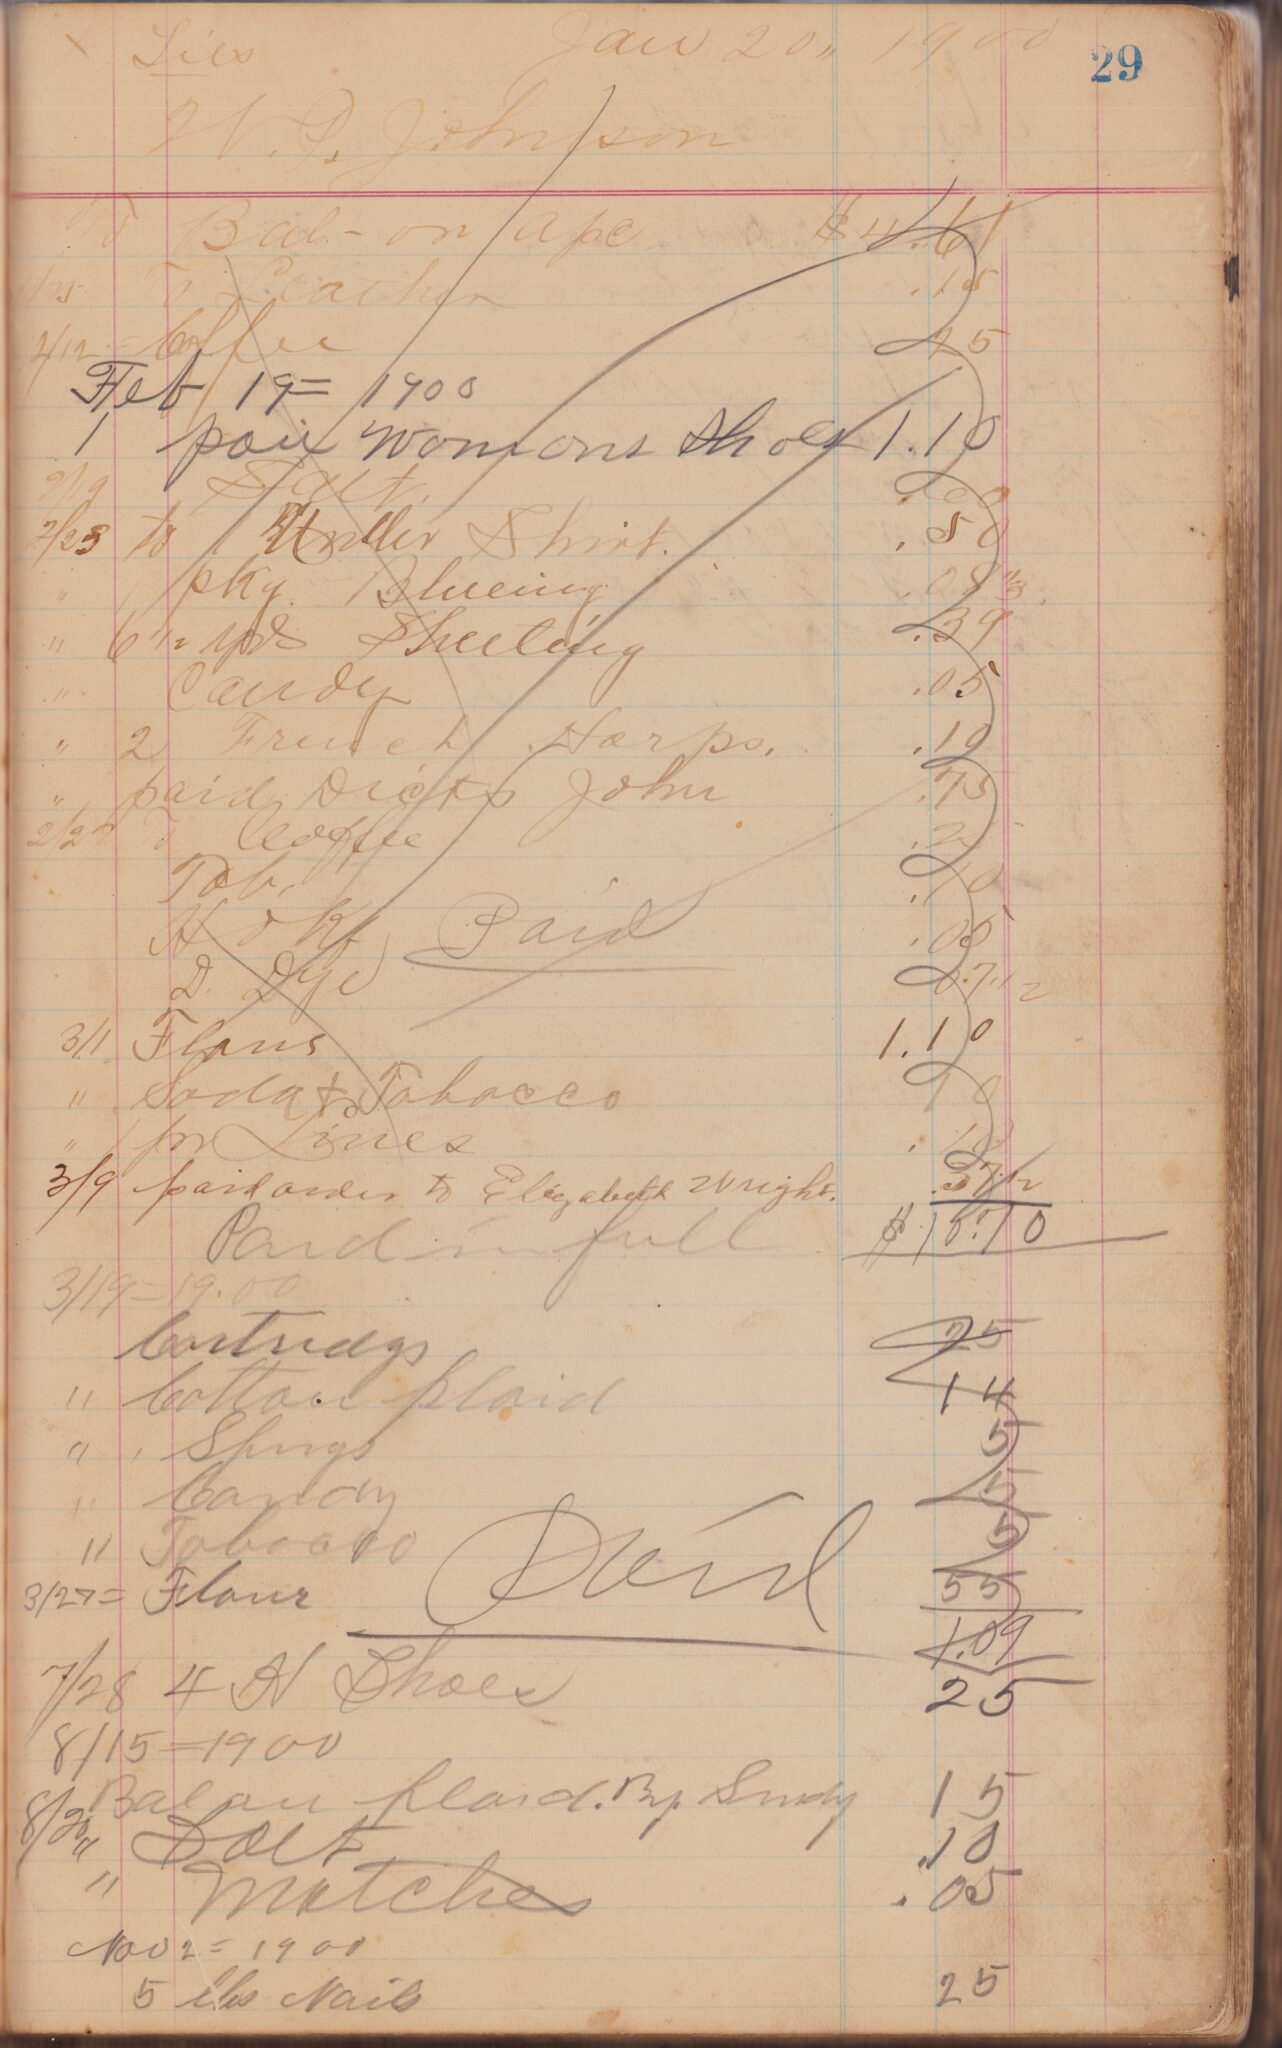 29
Jan 20, 1900
W. D. Johnson
To Bal- on apc $4.61
To Leather .15
2/12 = Coffee 25
Feb 19= 1900
1 pair Womans Shoes 1.10
2/19 Salt
2/23 to 1 Under Shirt. .50
" 1 pkg. Blueing
" 6 1/2 yds Sheeting .39
" Candy .05
" 2 French Harps. .10
" paid Dicks John .75
2/27 To Coffee
Tob. .10
H Dkf .05
D. Dye Paid
3/1 Flour 1.10
" Soda & Tobacco 10
" 1 pr Lines
3/9 paid order to Elizabeth Wright. .37 1/2
Paid in full $10.70
3/19=1900
Cartridgs 25
" Cotton plaid 14
" Spurgs 5
" Candy 5
" Tobacco 5
3/27= Flour 55
Paid 1.09
7/28 4 H Shoes 25
8/15=1900
Bal on plaid. By 15
8/20 " Salt .10
" Matches .05
Nov 2= 1900
5 lbs Nails 25